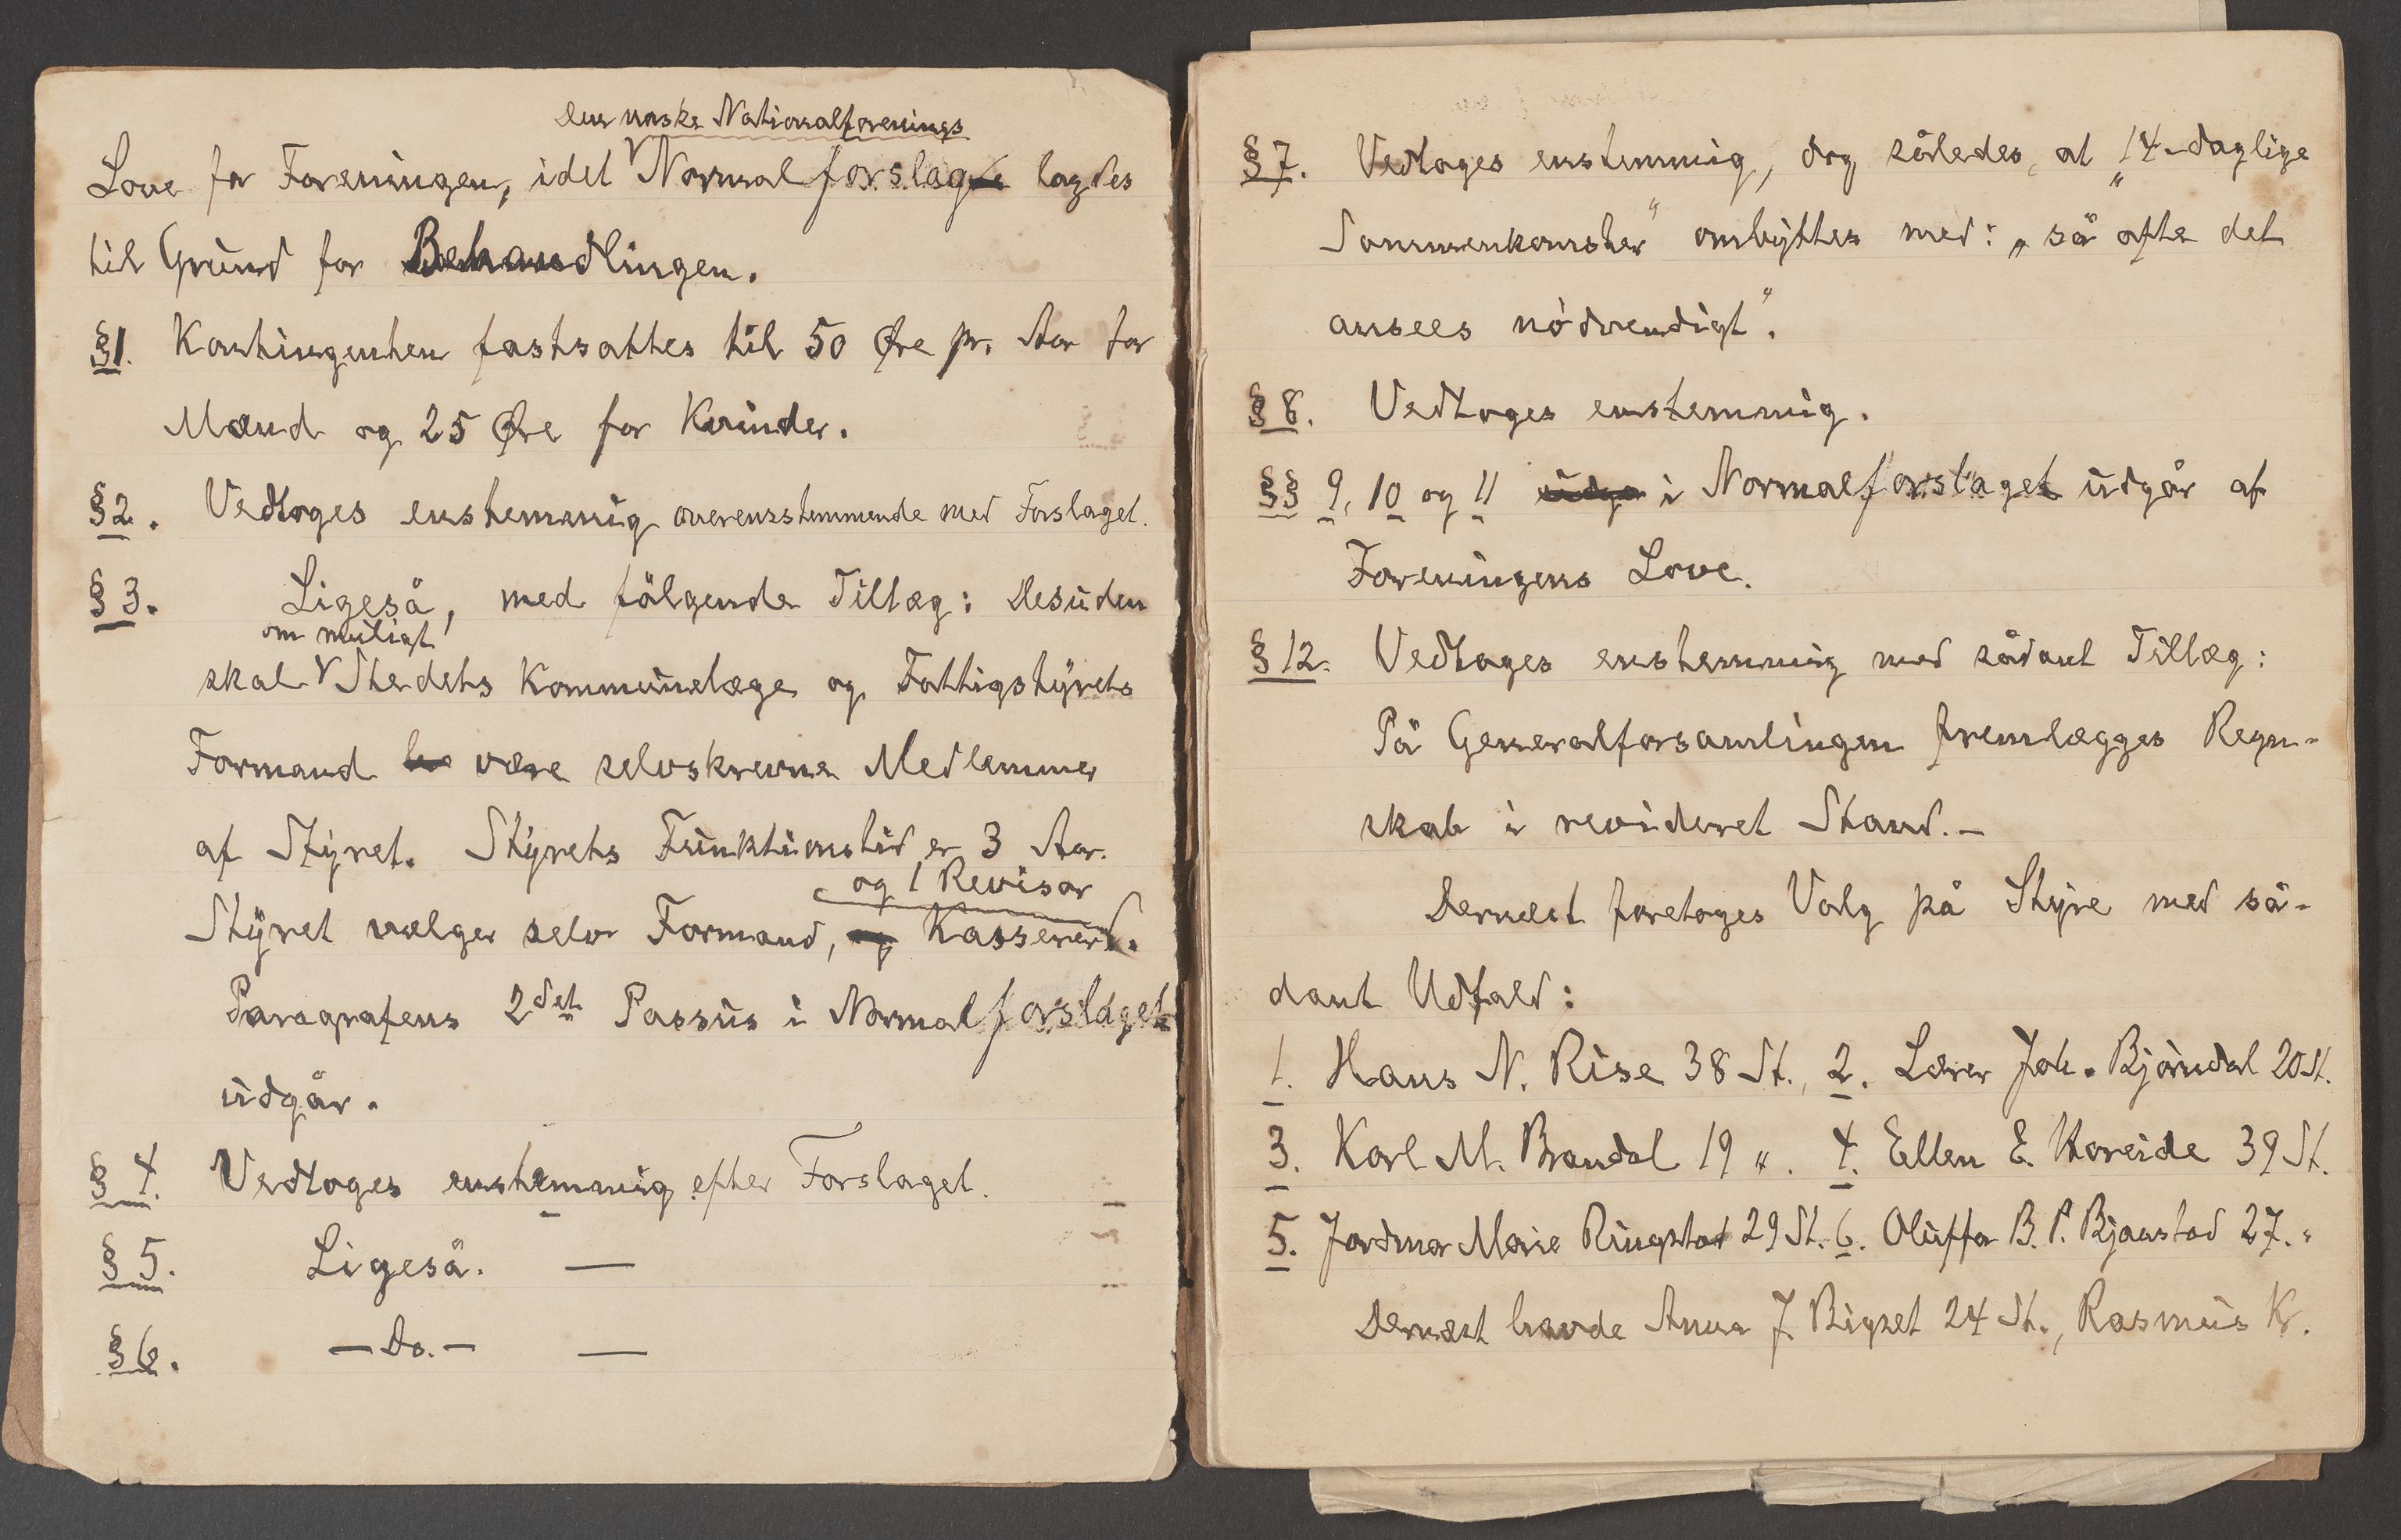 Den norske Nationalforenings
Love for Foreningen, idet Normalforslag lagdes
til Grund for Behandlingen.
§1. Kontingenten fastsattes til 50 Øre pr. Aar for
Mænd og 25 Øre for Kvinder.
§2. Vedtoges enstemmig overensstemmende med Forslaget.
§3. Ligeså, med følgende Tillæg: Desuden
om muligt
skal Stedets Kommunelæge og Fattigstyrets
Formand være selvskrevne Medlemmer
af Styret. Styrets Funktionstid er 3 Aar.
og 1 Revisor
Styret vælger selv Formand, og Kasserer.
Paragrafens 2det Passus i Normalforslaget
udgår.
§ 4. Vedtoges enstemmig efter Forslaget.
§ 5. Ligeså. —
§ 6. — Do. — —
§ 7. Vedtoges enstemmig, dog således, at „14-daglige
Sammenkomster" ombyttes med: „så ofte det
ansees nødvendigt".
§ 8. Vedtoges enstemmig.
§§ 9, 10 og 11 udgå i Normalforslaget udgår af
Foreningens Love.
§ 12. Vedtoges enstemmig med sådant Tillæg:
På Generalforsamlingen fremlægges Regn-
skab i revideret Stand. –
Dernæst foretoges Valg på Styre med så-
dant Udfald:
1. Hans N. Rise 38 St., 2. Lærer Joh. Bjørndal 20 St.
3. Karl M. Brandal 19 „. 4. Ellen E. Hareide 39 St.
5. Jordmor Marie Ringstad 29 St. 6. Oluffa B. P. Bjaastad 27. „
Dernæst havde Anna J. Rigset 24 St., Rasmus Kr.